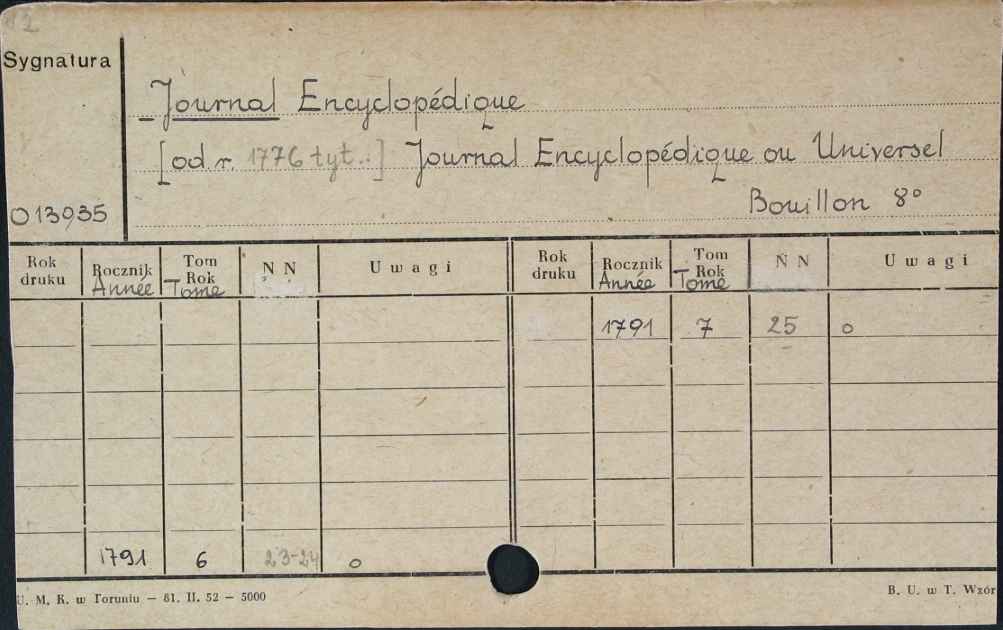 12
Sygnatura
Journal Encyclopédique
[od r. 1776 tyt..] Journal Encyclopédique ou Universel
013935
Bouillon 8°
Rok druku Rocznik Année Tom Rok Tome N N Uwagi Rok druku Rocznik Année Tom Rok Tome N N Uwagi
1791 7 25 o
1791 6 23-24 o
U. M. K. w Toruniu — 81. II. 52 — 5000
B. U. w T. Wzór